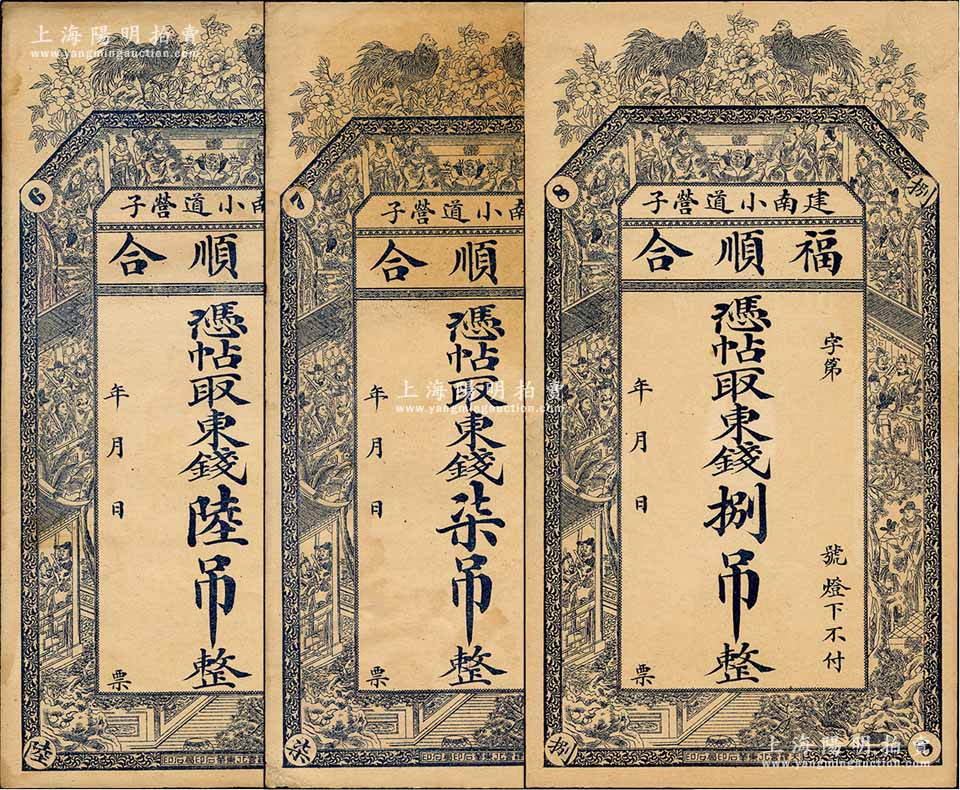 上海陽明拍賣
www.yangmingauction.com
6
南小道營子
順合
憑帖取東錢陸吊整
年月日
票
陸
7
南小道營子
順合
憑帖取東錢柒吊整
年月日
票
柒
上海陽明拍賣
www.yangmingauction.com
8
捌
建南小道營子
福順合
字第
號燈下不付
憑帖取東錢捌吊整
年月日
票
捌
上海陽明拍賣
www.yangmingauction.com